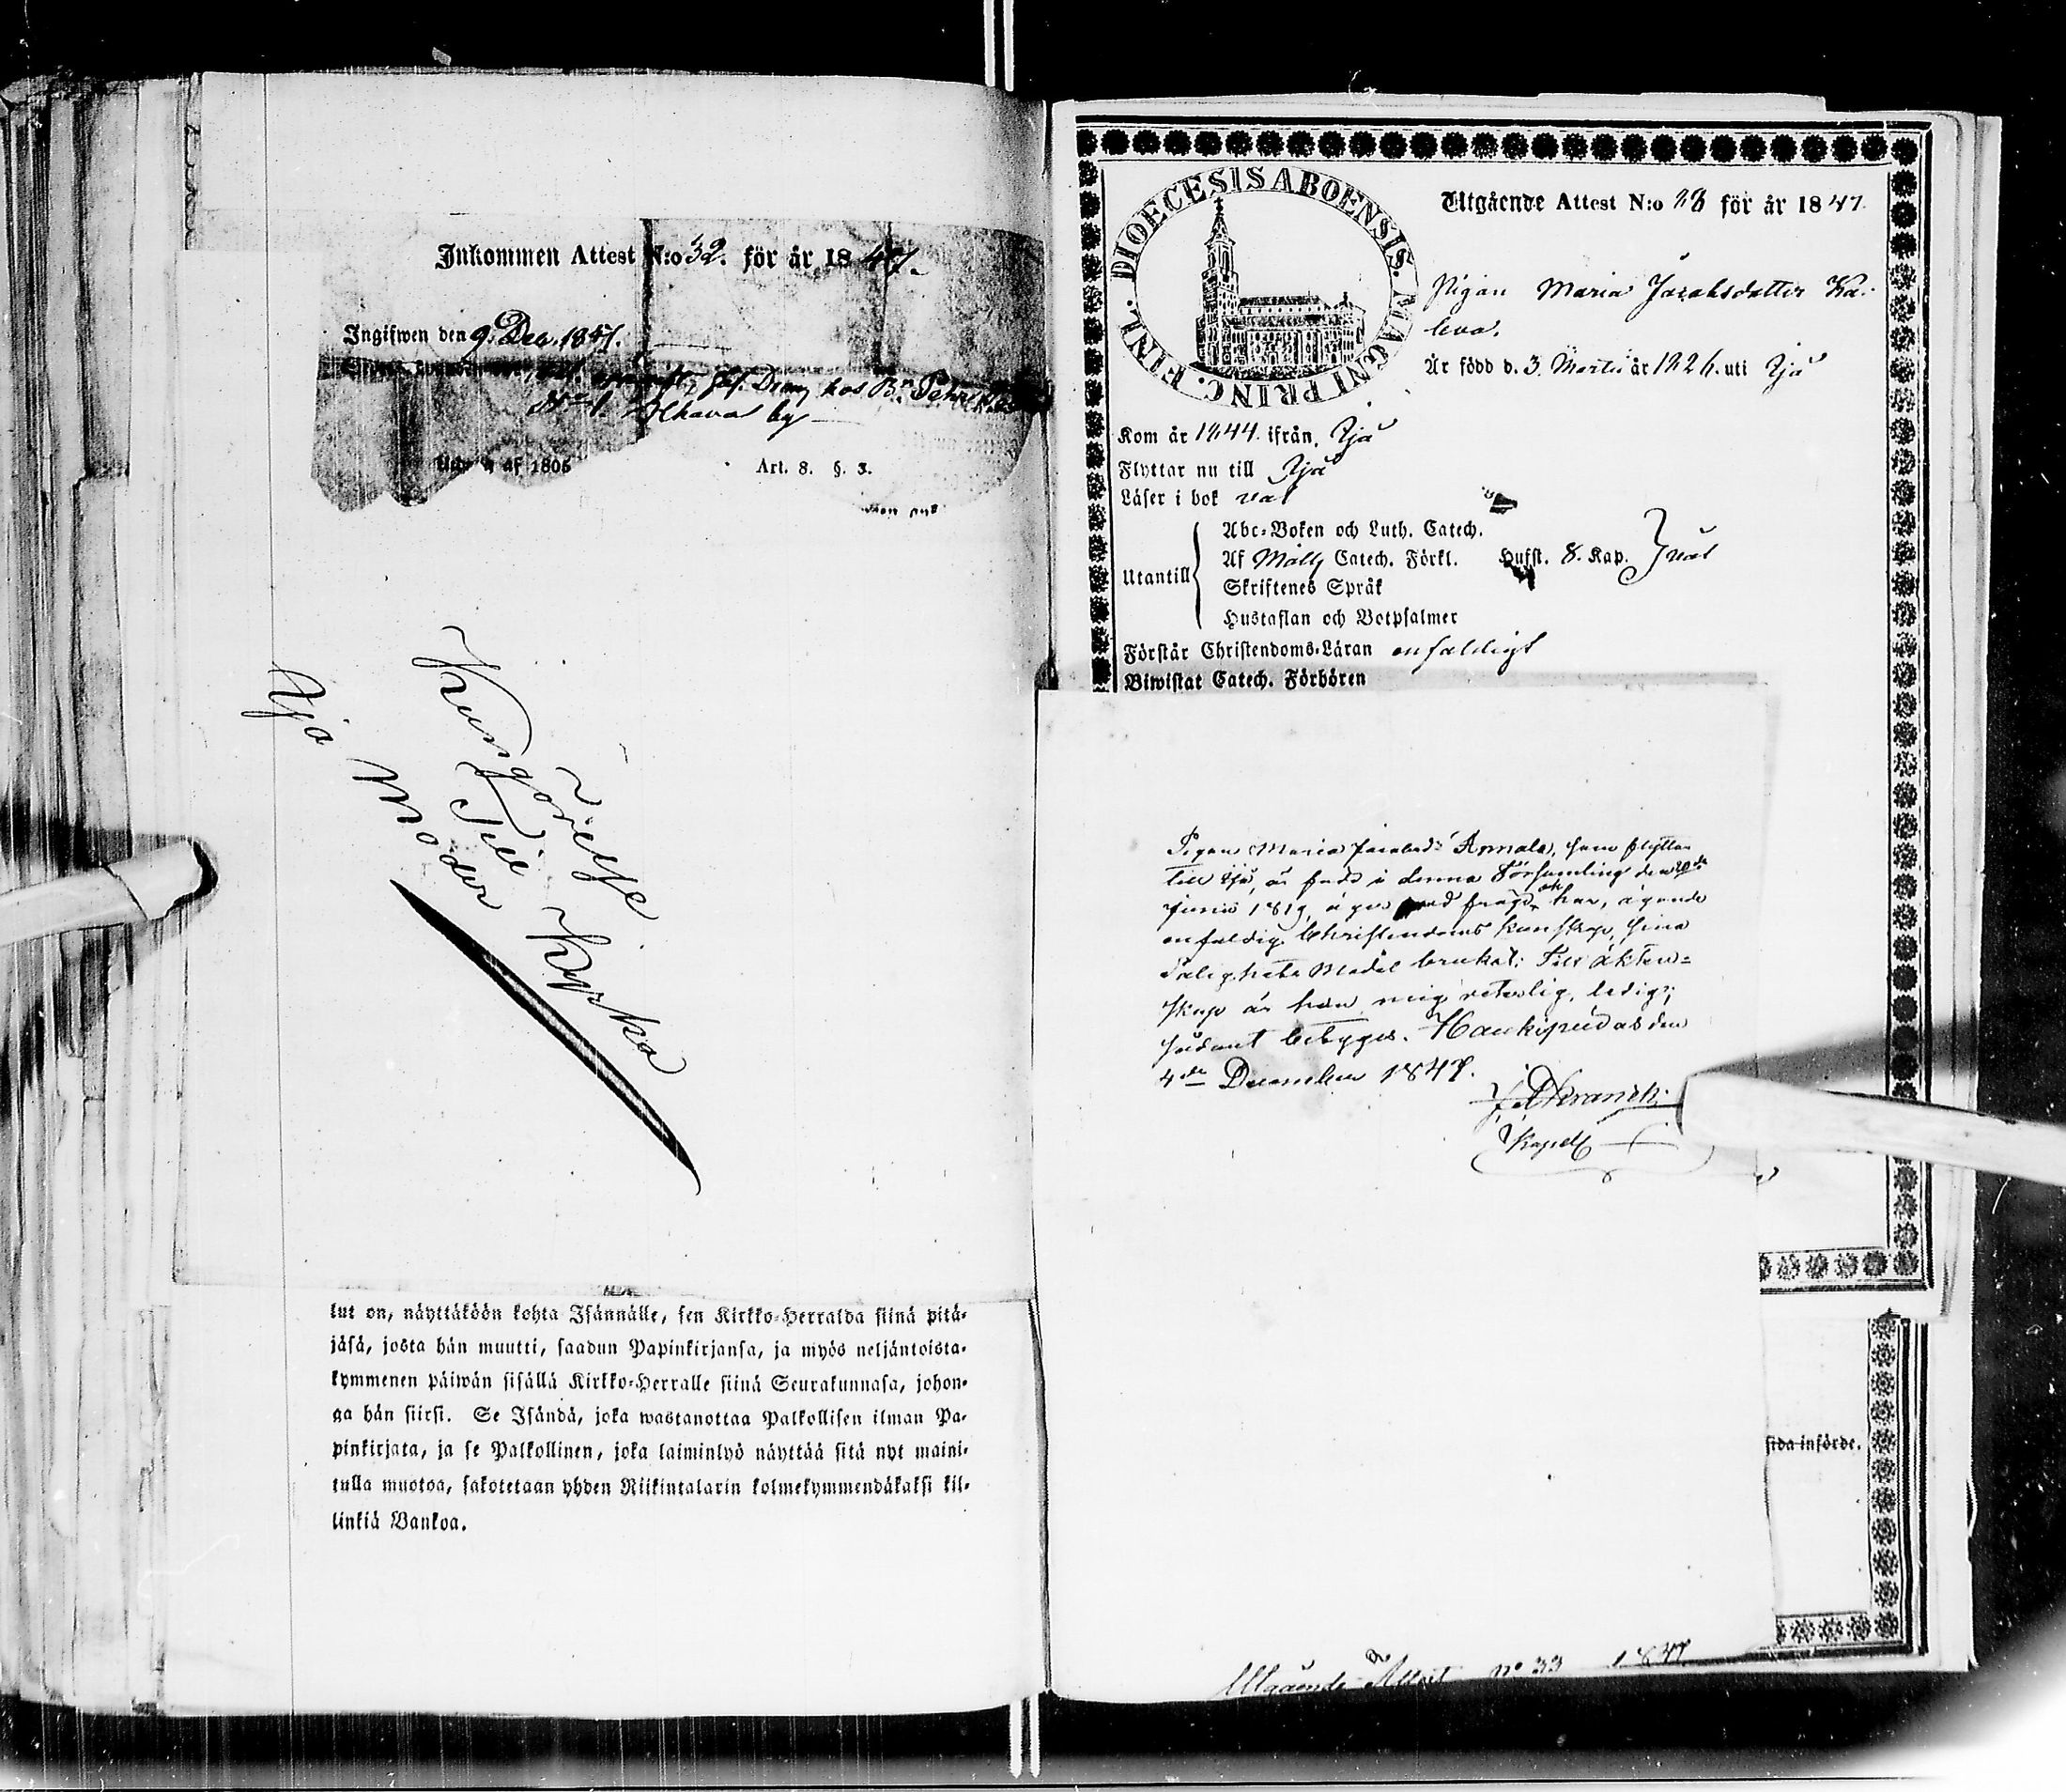 Inkommen Attest N:o 32. för år 1847.
Ingifwen den 9. Dec. 1847.
hos Bn. Pehr
No 1. Olhava by
af 1805 Art. 8. §. 3.
Kungörelse
Till Kyrka
Ijo Moder
lut on, näyttäköön kohta Isännälle, sen Kirkko-Herralda siinä pitä-
jäsä, josta hän muutti, saadun Papinkirjansa, ja myös neljäntoista-
kymmenen päiwän sisällä Kirkko-Herralle siinä Seurakunnasa, johon-
ga hän siirsi. Se Isändä, joka wastanottaa Palkollisen ilman Pa-
pinkirjata, ja se Palkollinen, joka laiminlyö näyttää sitä nyt maini-
tulla muotoa, sakotetaan yhden Riikintalarin kolmekymmendäkaksi kil-
linkiä Bankoa.
DIOECESIS ABOENSIS. MAGNI PRINC. FINL.
Utgående Attest N:o 28 för år 1847.
Pigan Maria Jacobsdotter Ka-
leva.
Är född d. 3. Martii år 1826. uti Ijå
Kom år 1844. ifrån, Ijå
Flyttar nu till Ijå
Läser i bok väl
Utantill
Abc-Boken och Luth. Catech.
Af Catech. Förkl. Hufst. 8. Kap. väl
Skriftenes Språk
Hustaflan och Botpsalmer
Förstår Christendoms-Läran enfaldigt
Biwistat Catech. Förhören
Pigan Maria Jacobsdr Annala, som flyttar
till Ijå, är född i denna Församling den 20de
Junii 1819, äger god frägd, har, ägande
enfaldig Christendoms kunskap, sina
Salighets Medel brukat: Till äkten-
skap är hon mig veterlig, ledig;
sådant betygas. Haukipudas den
4de December 1847.
Kapell.
sida införde.
Utgående Attest No 33 1847